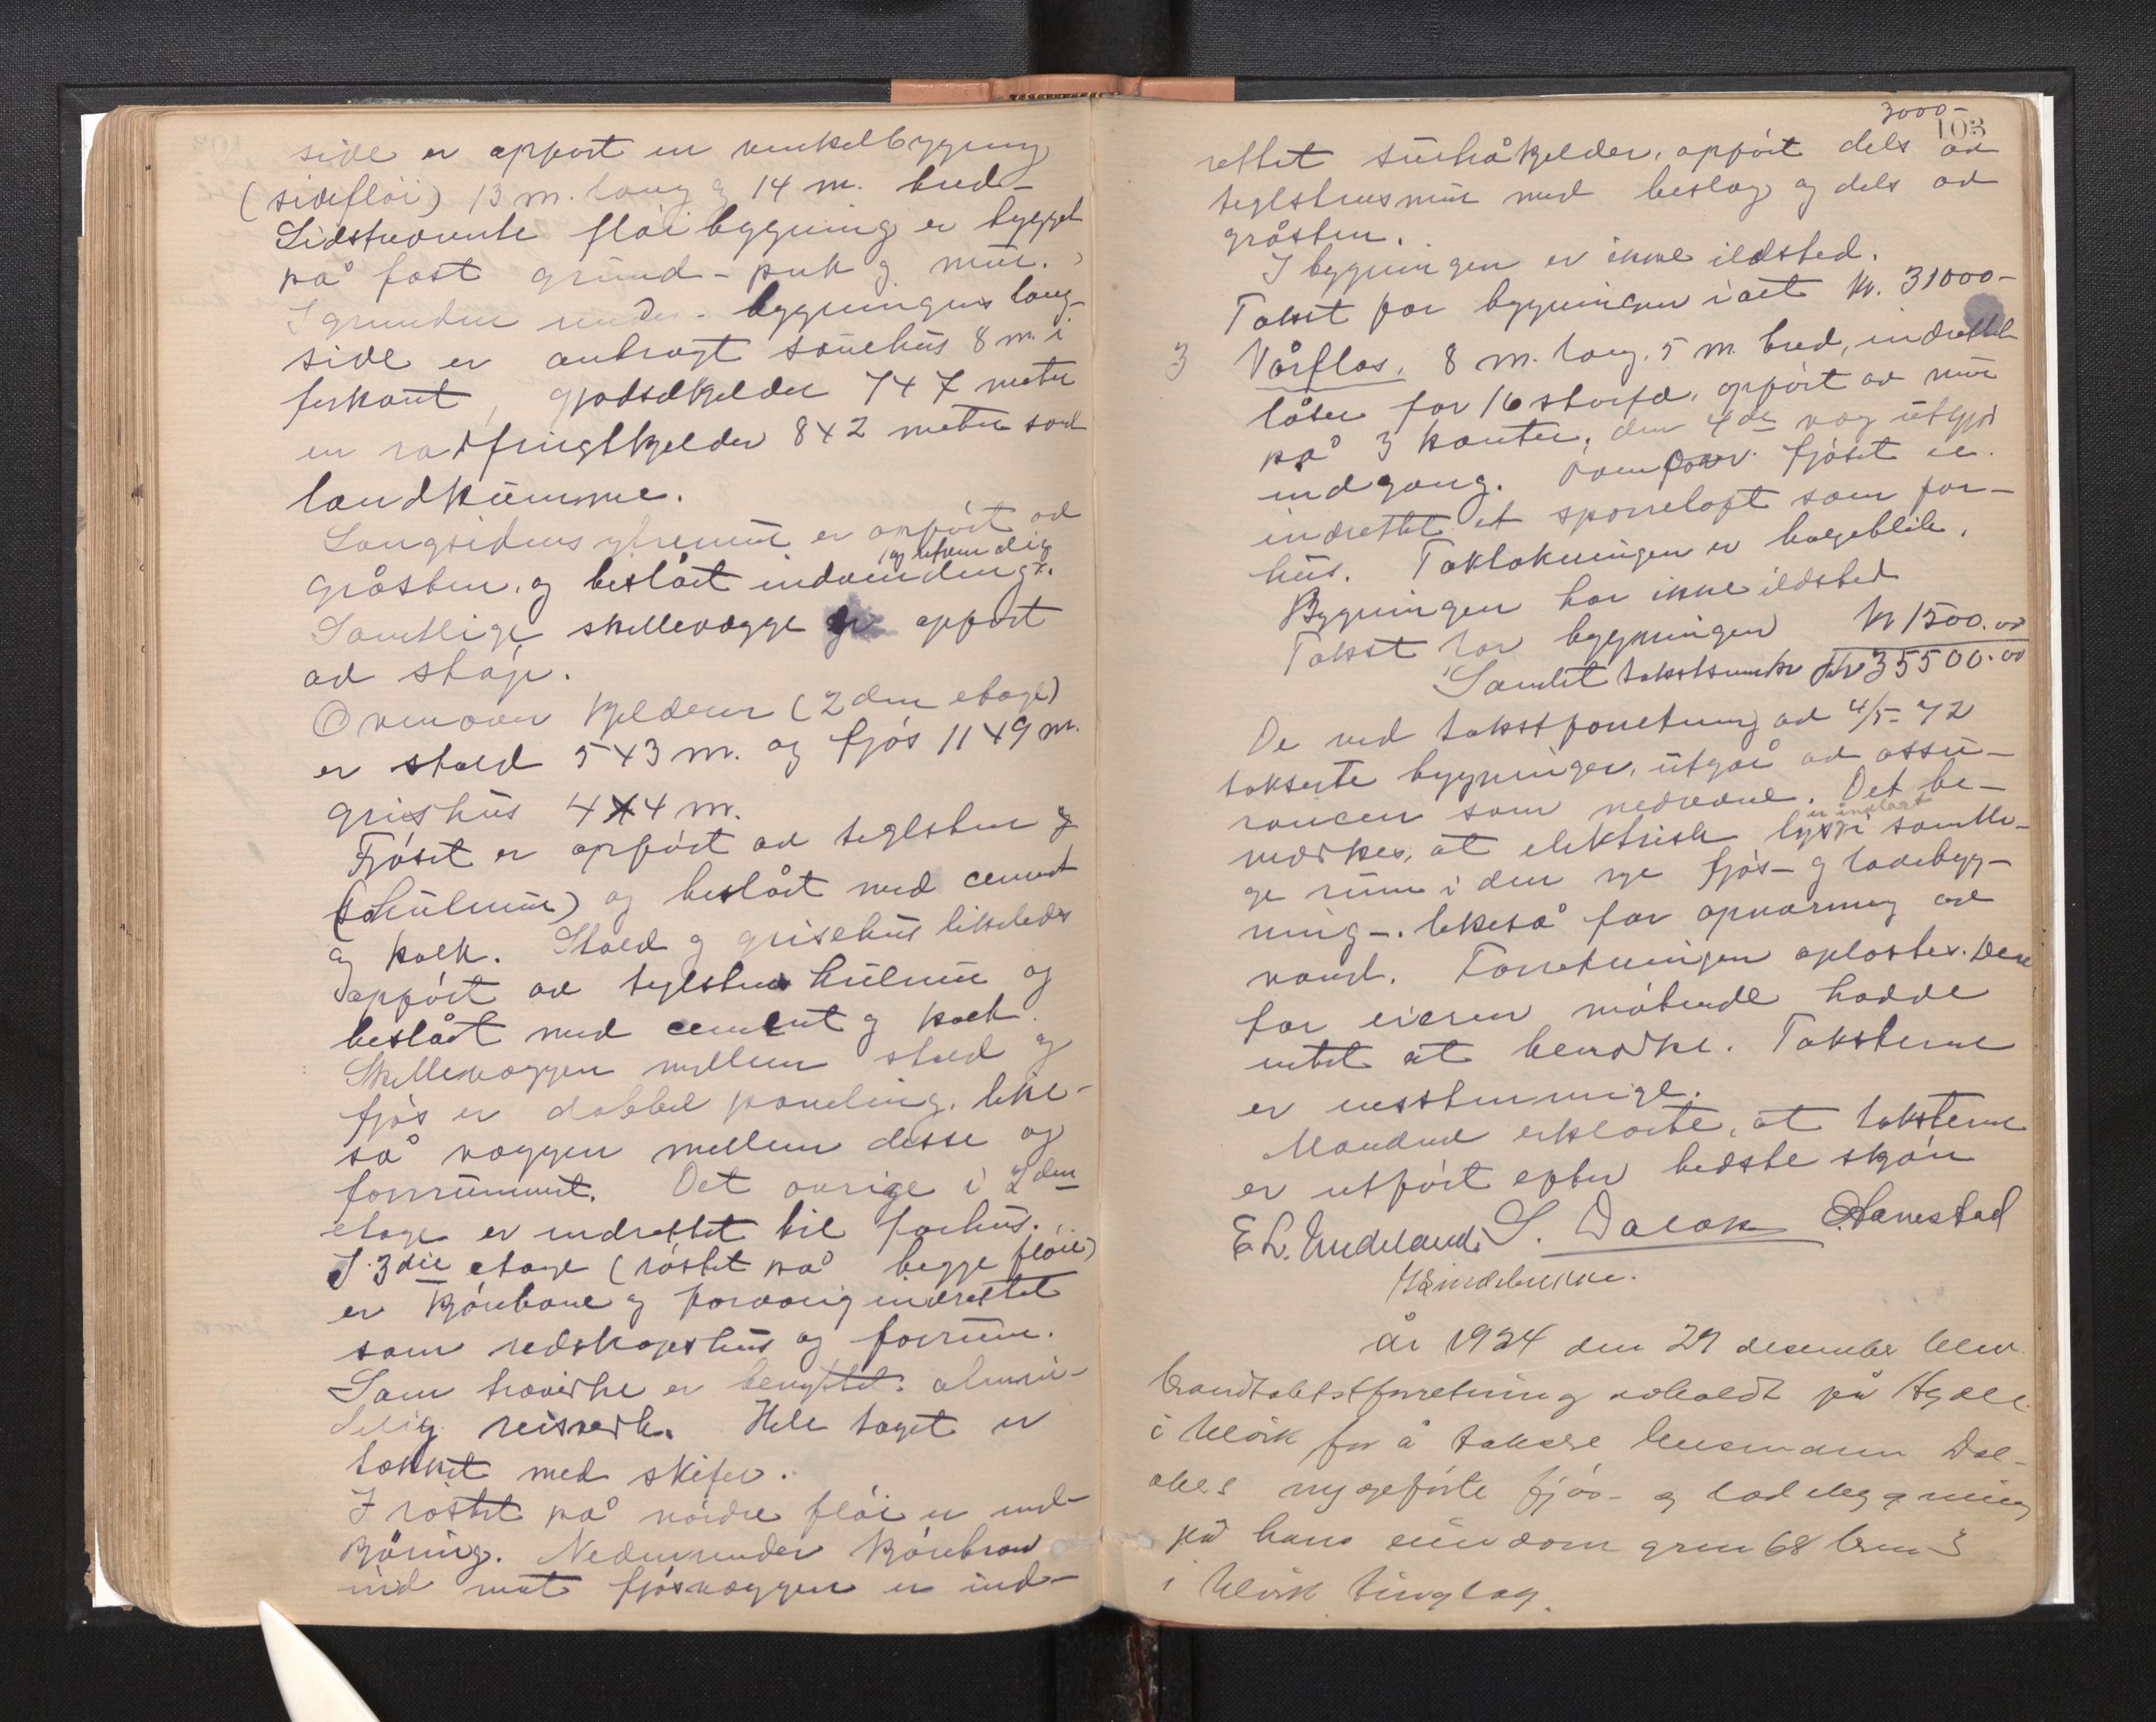 side er opført en vinkelbygging
(sidefløi) 13 m. lang og 14 m. bred-
Sidstnævnte fløibygging er bygget
på fast grund - puk og mur.
I grunden under bygningens lang-
side er anbragt sauehus 8 m. i
firkant, gjødselkjelder 7x7 meter
en rodfrugtkjelder 8x2 meter samt
landkumme.
Langsidens ytremur er opført ad
gråsten, og beslåt indvendig
og utvendig
Samtlige skillevægge er opført
ad støp.
Ovenover kjelderen (2den etage)
er stald 5x3 m. og fjøs 11x9 m.
grishus 4x4 m.
Fjøset er opført ad teglsten og
(hulmur) og beslåt med cement
og kalk. Stald og grisehus likeledes
opført av teglstens hulmur og
beslåt med cement og kalk.
Skillevæggen mellem stald og
fjøs er dobbel paneling, like-
så væggen mellem disse og
forrummet. Det øvrige i 2den
etage er indrettet til forhus.
I 3die etage (røstet på begge fløie)
er kjørebane og forøvrig indrettet
som redskapshus og forrum.
Som træverke er benyttet almin-
delig reisverk. Hele taget er
tækket med skifer.
I røstet på nordre fløi er ind-
kjøring. Nedenunder kjørebroen
ind mot fjøsvæggen er ind-
3000-
103
rettet surhåkjelder, opført dels ad
teglstensmur med beslag og dels ad
gråsten.
I bygningen er ikke ildsted.
Takst for bygningen i alt kr. 31000-
3 Vårfløs, 8 m. lang, 5 m. bred, indrettet
båser for 16 storfæ, opført av mur
på 3 kanter, den 4de væg utgjør
indgang. Ovenover fjøset er
indrettet et sperreloft som for-
hus. Taktækningen er bølgeblik.
Bygningen har ikke ildsted
Takst for bygningen kr 1500.00
Samlet takstsum kr 35500.00
De ved takstforretning ad 4/5-72
takserte bygninger, utgår ad assu-
rancen som nedrevne. Det be-
er indlagt
merkes, at elektrisk lys i samtli-
ge rum i den nye fjøs- og ladebyg-
ning-. likeså for opvarming ad
vand. Forretningen oplæstes. Den
for eieren møtende hadde
intet at bemerke. Taksterne
er enstemmige.
Mændene erklærte, at taksterne
er utført efter bedste skjøn
E. L. Undeland S. Dalok O. Hanestad
H Lindebrekke.
År 1924 den 29 desember blev
brandtakstforretning avholdt på Hylle
i Ulvik for å taksere husmann Dal-
okes nyopførte fjøs- og ladebygning
på hans eiendom grn 68 brn 3
i Ulvik tinglag.